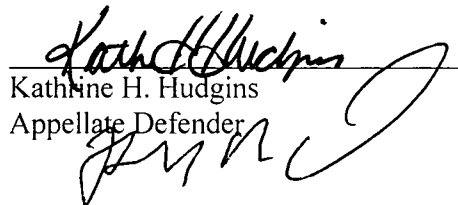 Kath H Hudgins
Kathrine H. Hudgins
Appellate Defender